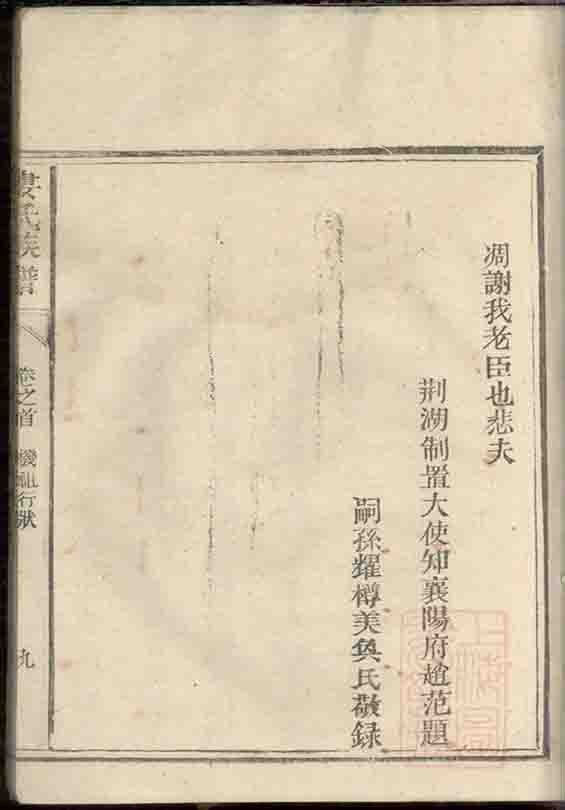 凋謝我老臣也悲夫
荆湖制置大使知襄陽府趙范題
嗣孫耀樽美㒷氏敬録
婁氏族譜
卷之首
機祖行狀
九
上海圖